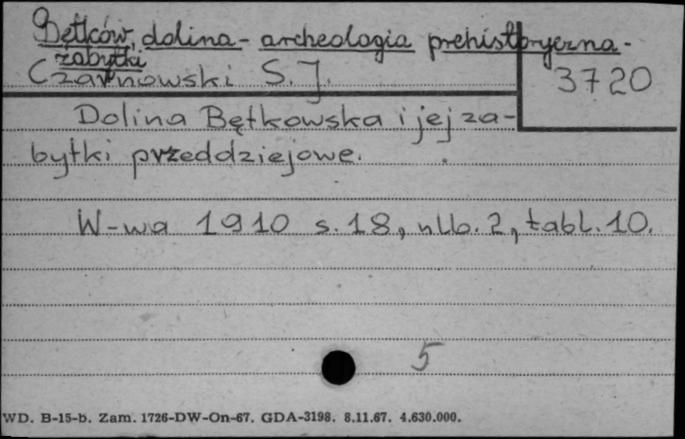 Bętków, dolina - archeologia prehistoryczna -
zabytki
Czarnowski S. J.
3720
Dolina Bętkowska i jej za-
bytki przeddziejowe.
W-wa 1910 s. 18, nlb. 2, tabl. 10.
5
WD. B-15-b. Zam. 1726-DW-On-67. GDA-3198. 8.11.67. 4.630.000.